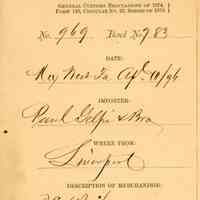 GENERAL CUSTOMS REGULATIONS OF 1874,
FORM 140, CIRCULAR NO. 92, SERIES OF 1875.
No. 969 Book No. 783
DATE:
Key West Fa Apl 10/96
IMPORTER:
Paul Delfie & Bro
WHERE FROM:
Liverpool
DESCRIPTION OF MERCHANDISE: